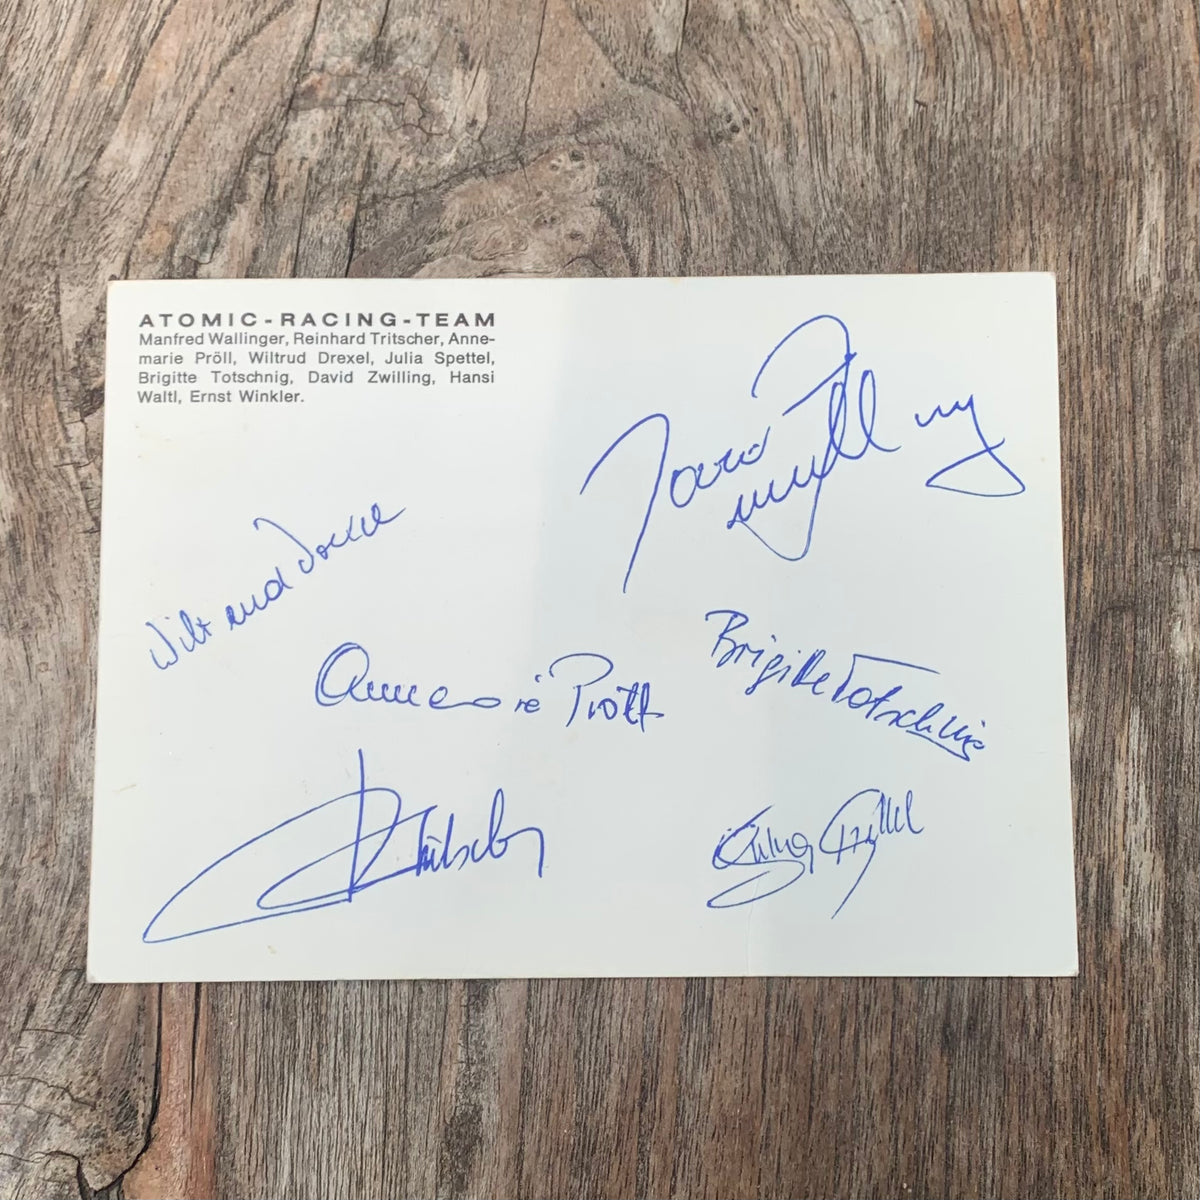 ATOMIC-RACING-TEAM
Manfred Wallinger, Reinhard Tritscher, Anne-
marie Pröll, Wiltrud Drexel, Julia Spettel,
Brigitte Totschnig, David Zwilling, Hansi
Waltl, Ernst Winkler.
David Zwilling
Wiltrud Drexel
Brigitte Totschnig
Annemarie Pröll
Tritscher